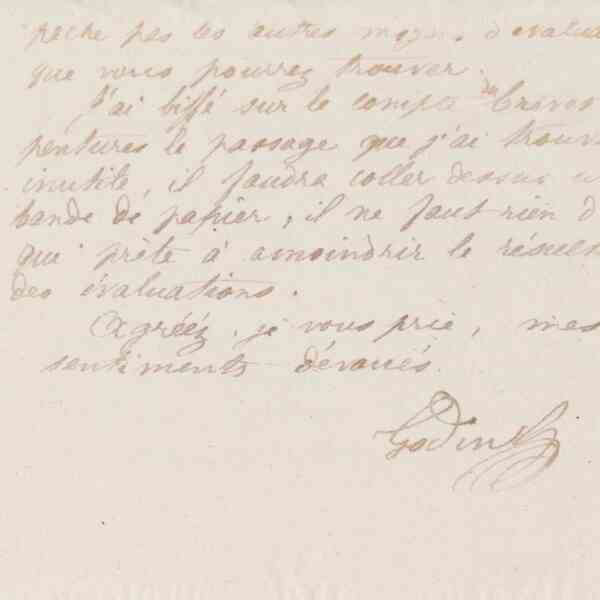 pêche pas les autres moyens d'évalua
que vous pourrez trouver.
J'ai biffé sur le compte des Graves
pentures le passage que j'ai trouv
inutile, il faudra coller dessus u
bande de papier, il ne faut rien d
qui prête à amoindrir le résul
des évaluations.
Agréez, je vous prie, mes
sentiments dévoués.
Godin